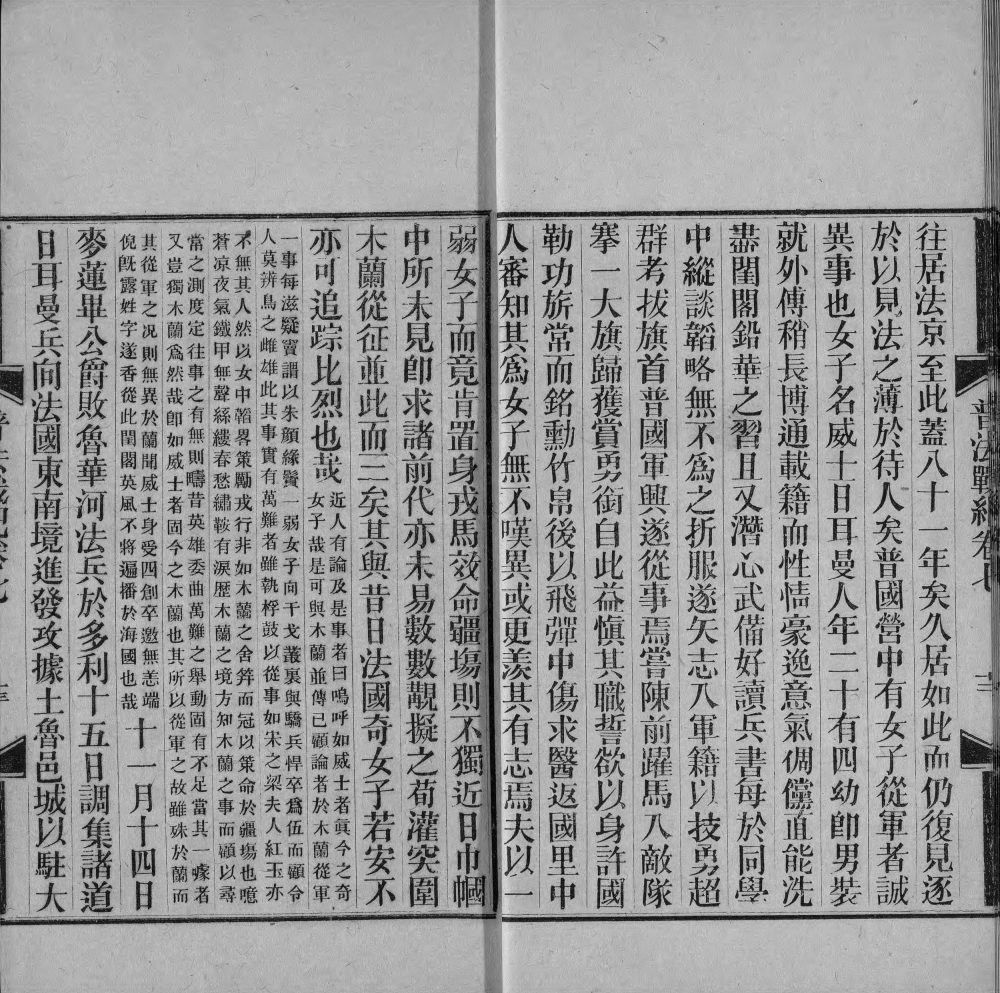 往居法京至此蓋八十一年矣久居如此而仍復見逐
於以見法之薄於待人矣普國營中有女子從軍者誠
異事也女子名威士日耳曼人年二十有四幼卽男裝
就外傅稍長博通載籍而性情豪逸意氣倜儻直能洗
盡閨閣鉛華之習且又潛心武備好讀兵書每於同學
中縱談韜略無不爲之折服遂矢志入軍籍以技勇超
群考拔旗首普國軍興遂從事焉嘗陳前躍馬入敵隊
搴一大旗歸獲賞勇銜自此益愼其職誓欲以身許國
勒功旂常而銘勳竹帛後以飛彈中傷求醫返國里中
人審知其爲女子無不嘆異或更羨其有志焉夫以一
普法戰紀卷七
弱女子而竟肯置身戎馬效命疆場則不獨近日巾幗
中所未見卽求諸前代亦未易數數覯擬之荀灌突圍
木蘭從征並此而三矣其與昔日法國奇女子若安不
亦可追踪比烈也哉近人有論及是事者曰嗚呼如威士者眞今之奇
女子哉是可與木蘭並傳已顧論者於木蘭從軍
一事每滋疑竇謂以朱顏綠鬢一弱女子向干戈叢裏與驕兵悍卒爲伍而顧令
人莫辨烏之雌雄此其事實有萬難者雖執桴鼓以從事如宋之梁夫人紅玉亦
不無其人然以女中韜畧策勵戎行非如木蘭之舍笄而冠以策命於疆場也噫
蒼凉夜氣鐵甲無聲絲縷春愁繡鞍有淚歷木蘭之境方知木蘭之事而顧以尋
當之測度定往事之有無則疇昔英雄委曲萬難之舉動固有不足當其一噱者
又豈獨木蘭爲然哉卽如威士者固今之木蘭也其所以從軍之故雖殊於蘭而
其從軍之况則無異於蘭聞威士身受四創卒邀無恙端
倪旣露姓字遂香從此閨閣英風不將遍播於海國也哉
十一月十四日
麥蓮畢公爵敗魯華河法兵於多利十五日調集諸道
日耳曼兵向法國東南境進發攻據土魯邑城以駐大